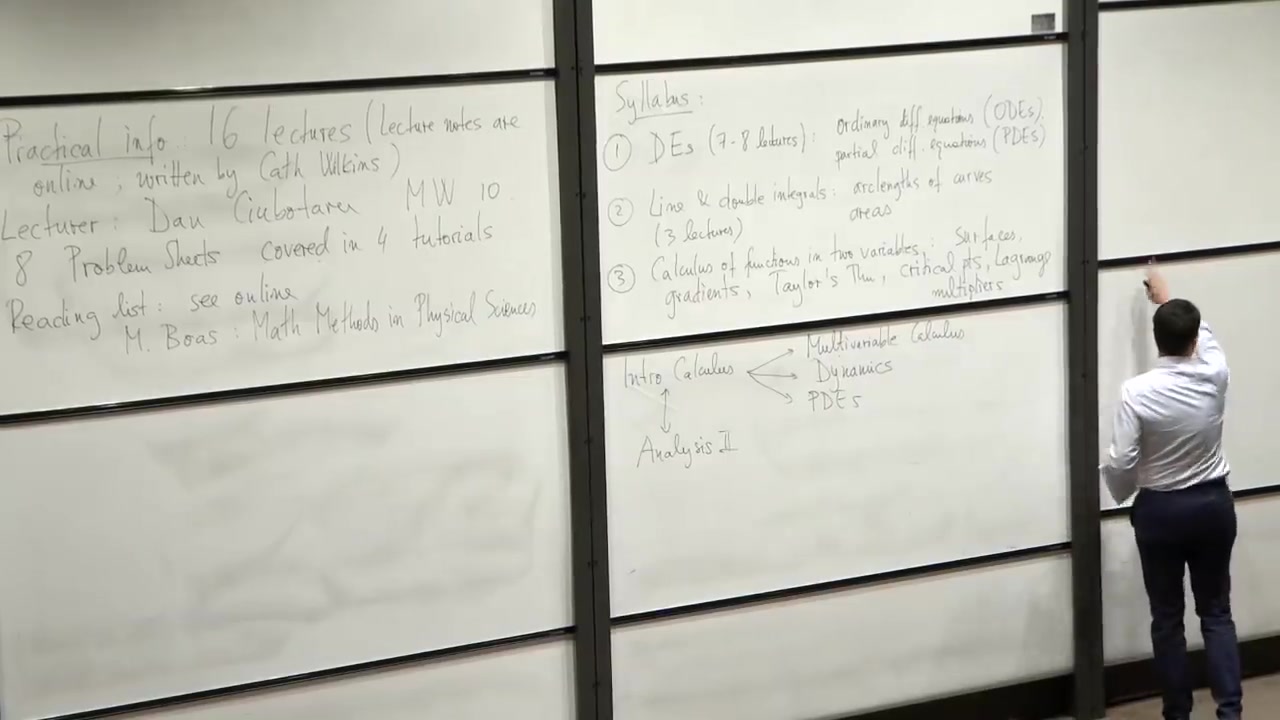 Practical info: 16 lectures (Lecture notes are
online; written by Cath Wilkins)
Lecturer: Dan Ciubotaru MW 10
8 Problem Sheets covered in 4 tutorials
Reading list: see online
M. Boas: Math Methods in Physical Sciences
Syllabus:
① DEs (7-8 lectures): ordinary diff equations (ODEs),
partial diff. equations (PDEs)
② Line & double integrals: arclengths of curves
(3 lectures) areas
③ Calculus of functions in two variables: Surfaces,
gradients, Taylor's Thm, critical pts, Lagrange
multipliers
Intro Calculus
Multivariable Calculus
Dynamics
PDEs
Analysis II